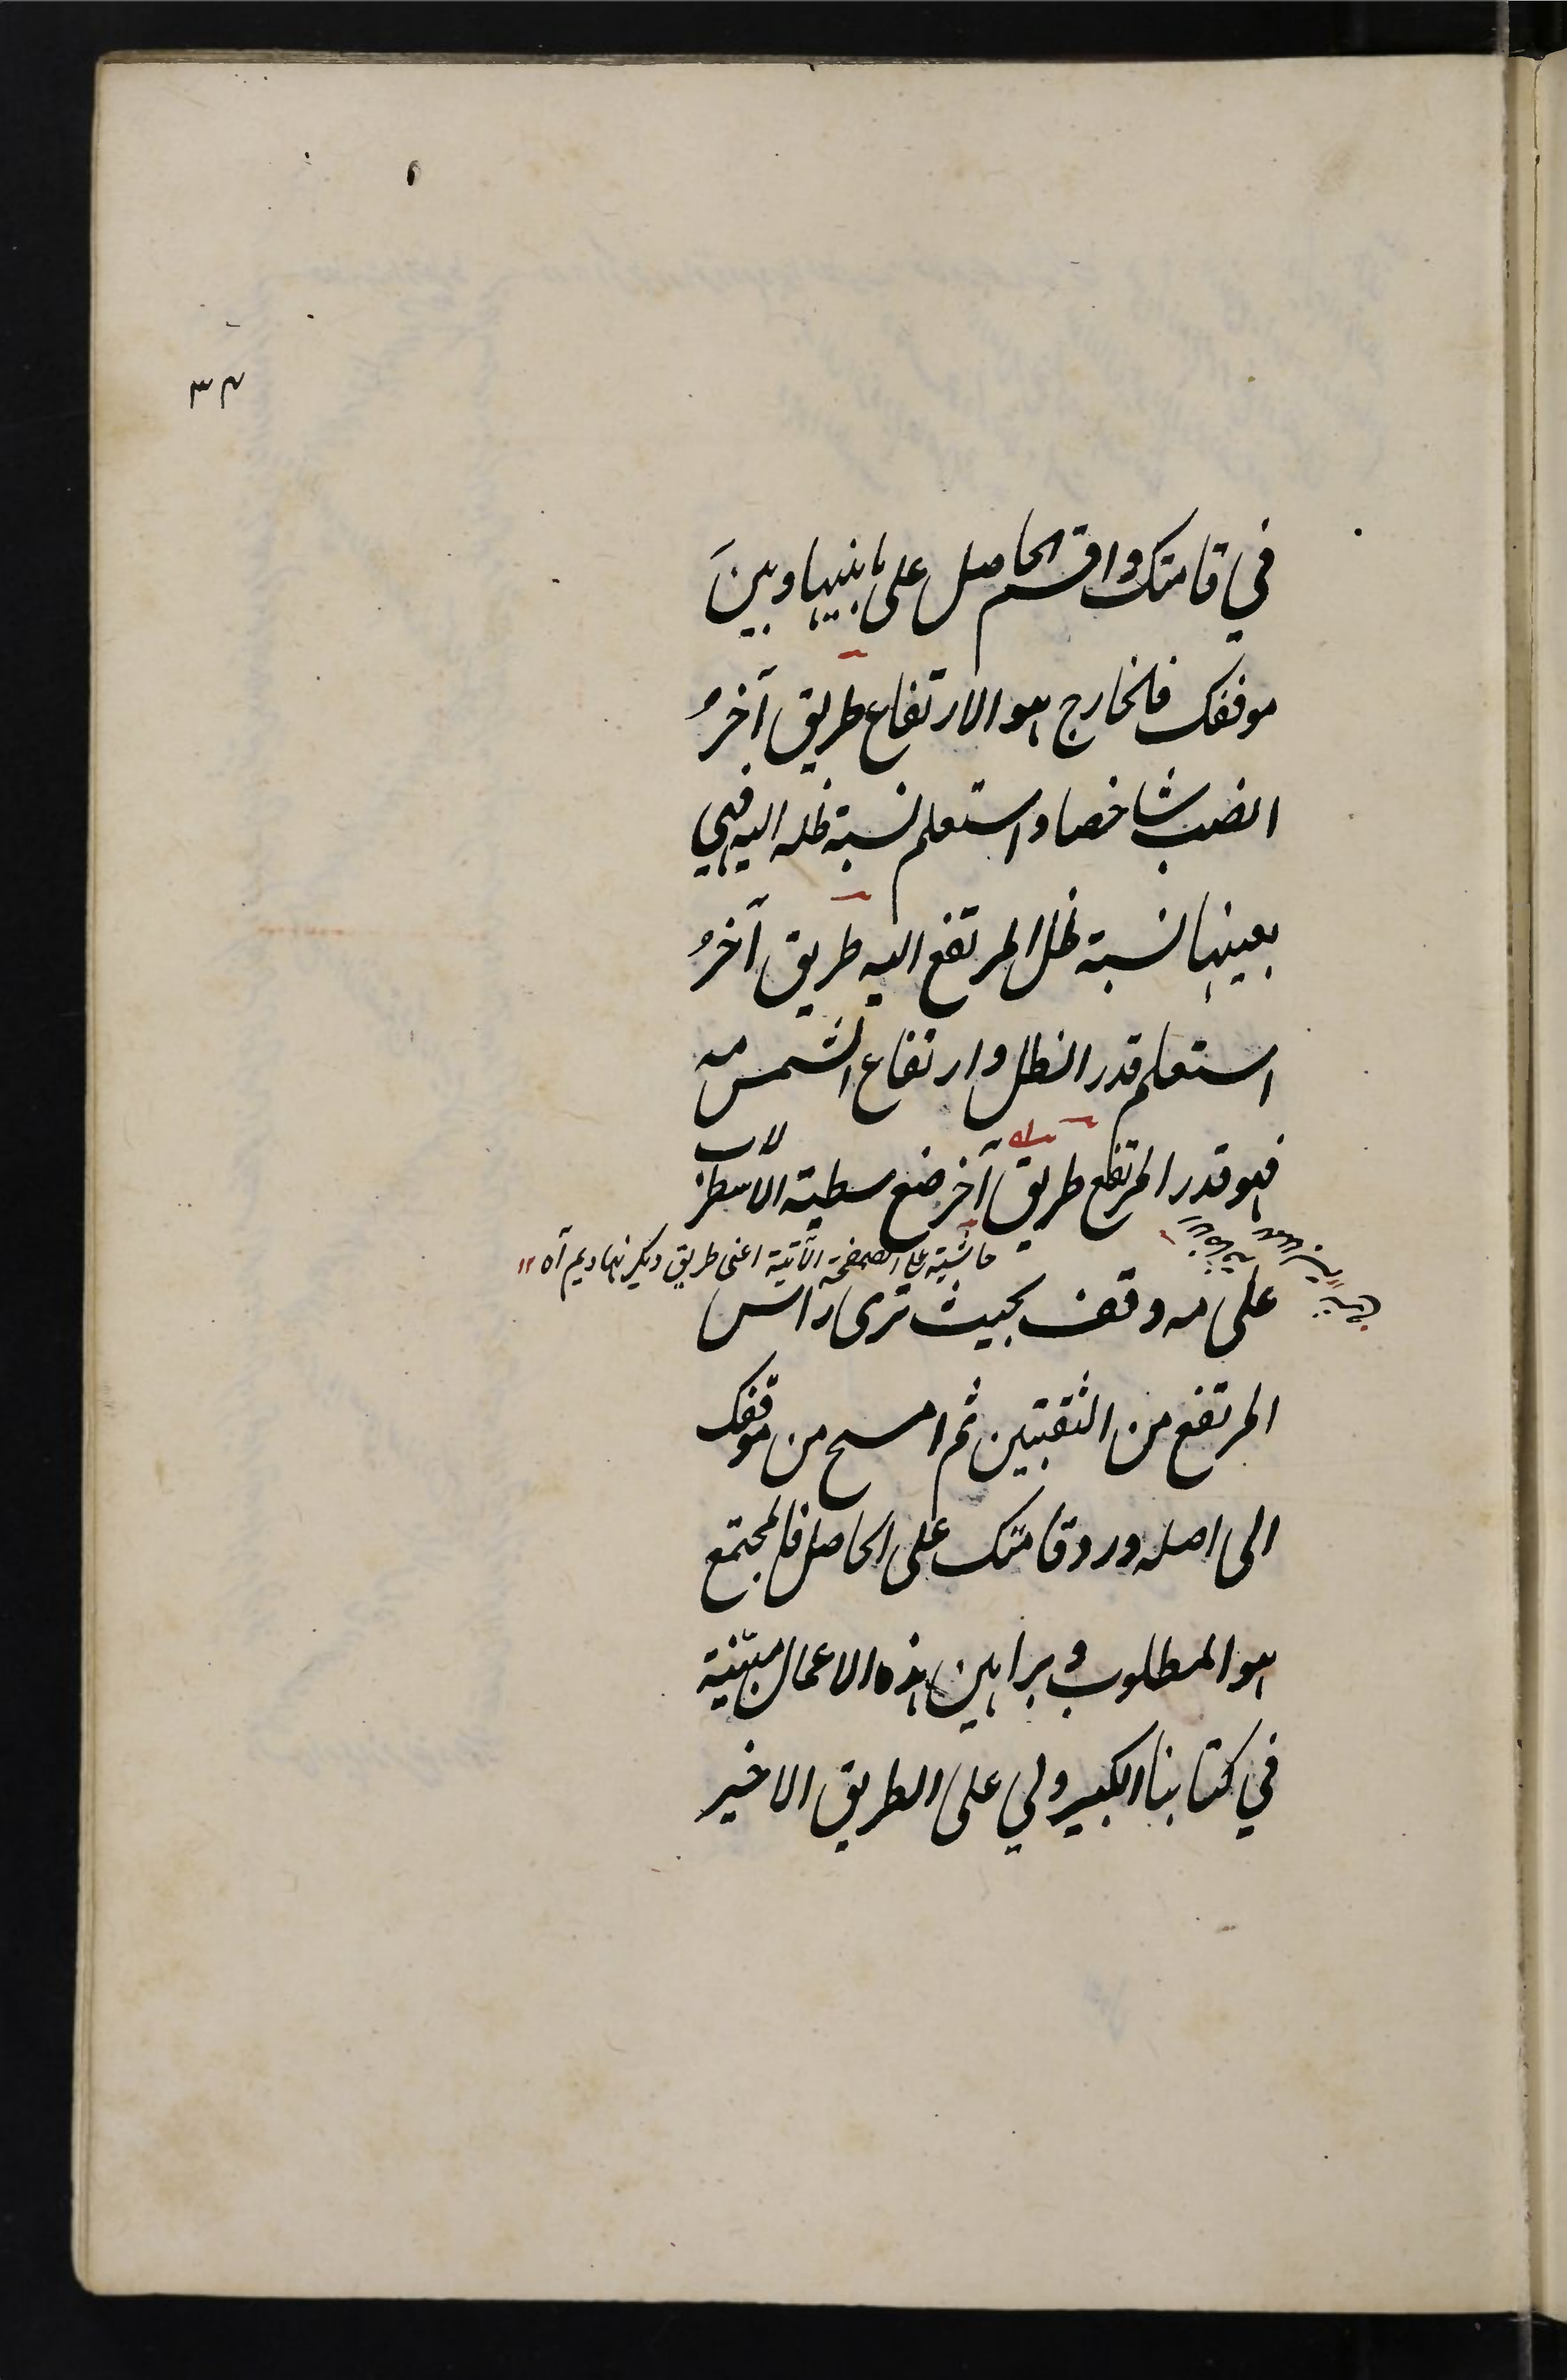 ٣٤
في قامتك واقسم الحاصل على ما بينها وبينَ
موقفك فالخارج هو الارتفاع طريق آخرُ
انصب شاخصا واستعلم نسبة ظله اليه فهي
بعينها نسبة ظل المرتفع اليه طريق آخرُ
استعلم قدر الظل وارتفاع الشمس مه
فهو قدر المرتفع طريق آخر ضع شظية الاسطرلاب
حاشية على الصفحة الآتية اعنى طريق ديگر نهاديم آه ١٢
على مه وقف بحيث ترى راس
المرتفع من الثقبتين ثم امسح من موقفك
الى اصله وزد قامتك على الحاصل فالمجتمع
هو المطلوب وبراهين هذه الاعمال مبيّنة
في كتابنا الكبير ولي على الطريق الاخير